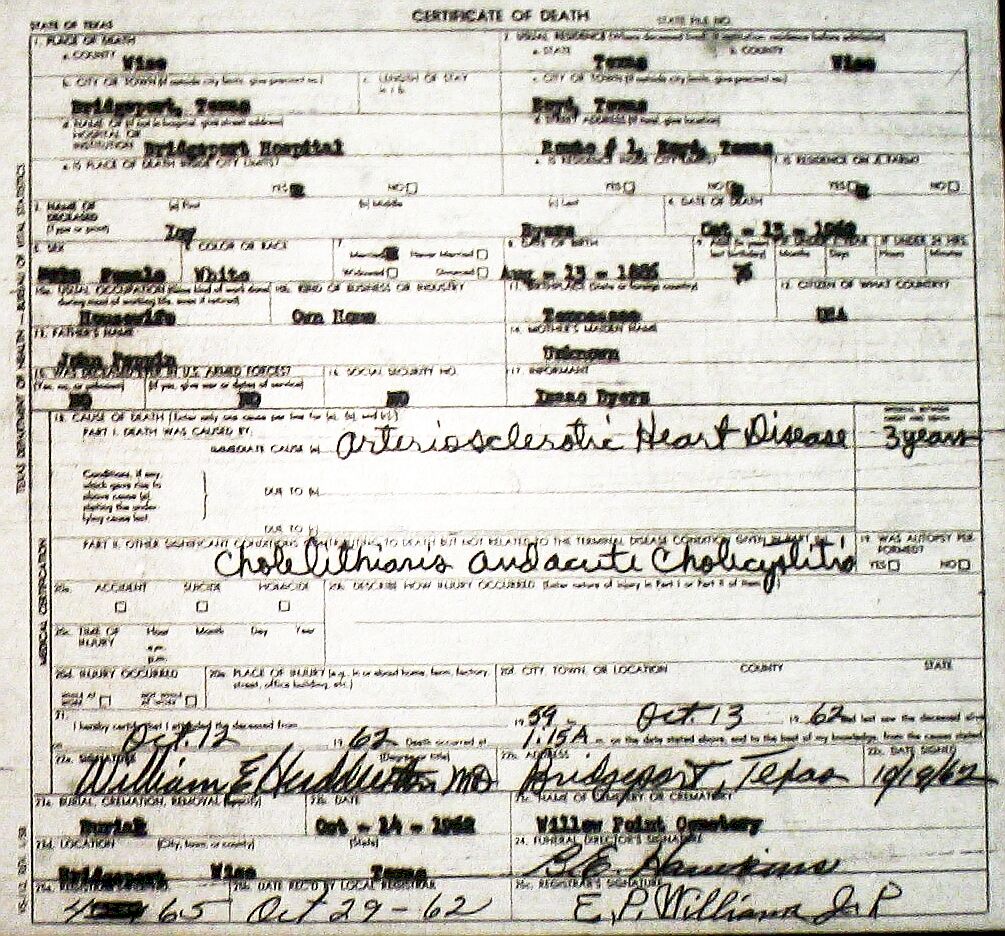 CERTIFICATE OF DEATH
STATE OF TEXAS STATE FILE NO.
1. PLACE OF DEATH 2. USUAL RESIDENCE (Where deceased lived. If institution: residence before admission)
a. COUNTY Wise a. STATE Texas b. COUNTY Wise
b. CITY OR TOWN (If outside city limits, give precinct no.) c. LENGTH OF STAY in 1 b. c. CITY OR TOWN (If outside city limits, give precinct no.)
Bridgeport, Texas Boyd, Texas
d. NAME OF (If not in hospital, give street address) d. STREET ADDRESS (If rural, give location)
HOSPITAL OR
INSTITUTION Bridgeport Hospital Route # 1, Boyd, Texas
e. IS PLACE OF DEATH INSIDE CITY LIMITS? e. IS RESIDENCE INSIDE CITY LIMITS? f. IS RESIDENCE ON A FARM?
YES NO YES NO YES NO
3. NAME OF DECEASED (Type or print) (a) First (b) Middle (c) Last 4. DATE OF DEATH
Byers Oct - 13 - 1962
5. SEX 6. COLOR OR RACE 7. Married Never Married 8. DATE OF BIRTH 9. AGE (In years last birthday) IF UNDER 1 YEAR IF UNDER 24 HRS.
Widowed Divorced Months Days Hours Minutes
Female White Aug - 13 - 76
10a. USUAL OCCUPATION (Give kind of work done during most of working life, even if retired) 10b. KIND OF BUSINESS OR INDUSTRY 11. BIRTHPLACE (State or foreign country) 12. CITIZEN OF WHAT COUNTRY?
Housewife Own Home Tennessee USA
13. FATHER'S NAME 14. MOTHER'S MAIDEN NAME
John Unknown
15. WAS DECEASED EVER IN U.S. ARMED FORCES? 16. SOCIAL SECURITY NO. 17. INFORMANT
(Yes, no, or unknown) (If yes, give war or dates of service)
NO NO NO Isaac Byers
18. CAUSE OF DEATH (Enter only one cause per line for (a), (b), and (c).) INTERVAL BETWEEN ONSET AND DEATH
PART I. DEATH WAS CAUSED BY:
IMMEDIATE CAUSE (a) Arteriosclerotic Heart Disease 3 years
Conditions, if any,
which gave rise to
above cause (a),
stating the under-
lying cause last.
DUE TO (b)
DUE TO (c)
PART II. OTHER SIGNIFICANT CONDITIONS CONTRIBUTING TO DEATH BUT NOT RELATED TO THE TERMINAL DISEASE CONDITION GIVEN IN PART I(a) 19. WAS AUTOPSY PER-
FORMED?
Cholelithiasis and acute Cholicystitis YES NO
20a. ACCIDENT SUICIDE HOMICIDE 20b. DESCRIBE HOW INJURY OCCURRED. (Enter nature of injury in Part I or Part II of item 18.)
20c. TIME OF INJURY Hour Month Day Year
a.m.
p.m.
20d. INJURY OCCURRED 20e. PLACE OF INJURY (e.g., in or about home, farm, factory, street, office building, etc.) 20f. CITY, TOWN, OR LOCATION COUNTY STATE
WHILE AT WORK NOT WHILE AT WORK
21. I hereby certify that I attended the deceased from 19 59 to Oct. 13 1962 and last saw the deceased alive
on Oct. 12 1962 Death occurred at 1:15A m. on the date stated above, and to the best of my knowledge, from the causes stated.
22a. SIGNATURE (Degree or title) 22b. ADDRESS 22c. DATE SIGNED
William E Huddleston MD Bridgeport, Texas 10/19/62
23a. BURIAL, CREMATION, REMOVAL (Specify) 23b. DATE 23c. NAME OF CEMETERY OR CREMATORY
Burial Oct - 14 - 1962 Willow Point Cemetery
23d. LOCATION (City, town, or county) (State) 24. FUNERAL DIRECTOR'S SIGNATURE
Bridgeport Wise Texas Hawkins
25a. REGISTRAR'S 25b. DATE REC'D BY LOCAL REGISTRAR 25c. REGISTRAR'S SIGNATURE
65 Oct 29-62 E. P. Williams J. P
TEXAS DEPARTMENT OF HEALTH — BUREAU OF VITAL STATISTICS
MEDICAL CERTIFICATION